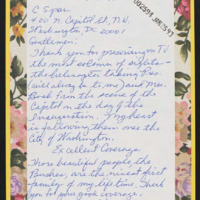 C Span
400 N. Capitol St, N.W.
Washington, Dc 20001
Gentlemen:
Thank you for presenting on TV
the most solemn of sights -
the helicopter taking Pres.
(will always be to me) and Mrs.
Bush from the scene of the
Capitol on the day of the
Inauguration. My heart
is following them over the
City of Washington.
Excellent Coverage
Those beautiful people, the
Bushes, are the nicest first
family of my life time. Thank
you for your good coverage.